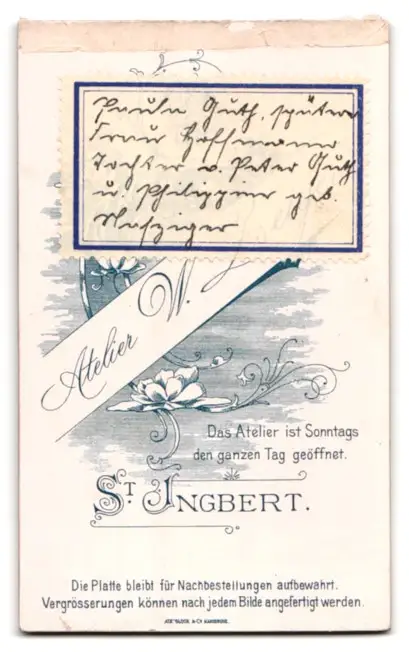 Paula Guth, spätere
Frau Hoffmann
Tochter v. Peter Guth
u. Philippine geb.
Nafziger
Atelier W.
Das Atelier ist Sonntags
den ganzen Tag geöffnet.
ST. INGBERT.
Die Platte bleibt für Nachbestellungen aufbewahrt.
Vergrösserungen können nach jedem Bilde angefertigt werden.